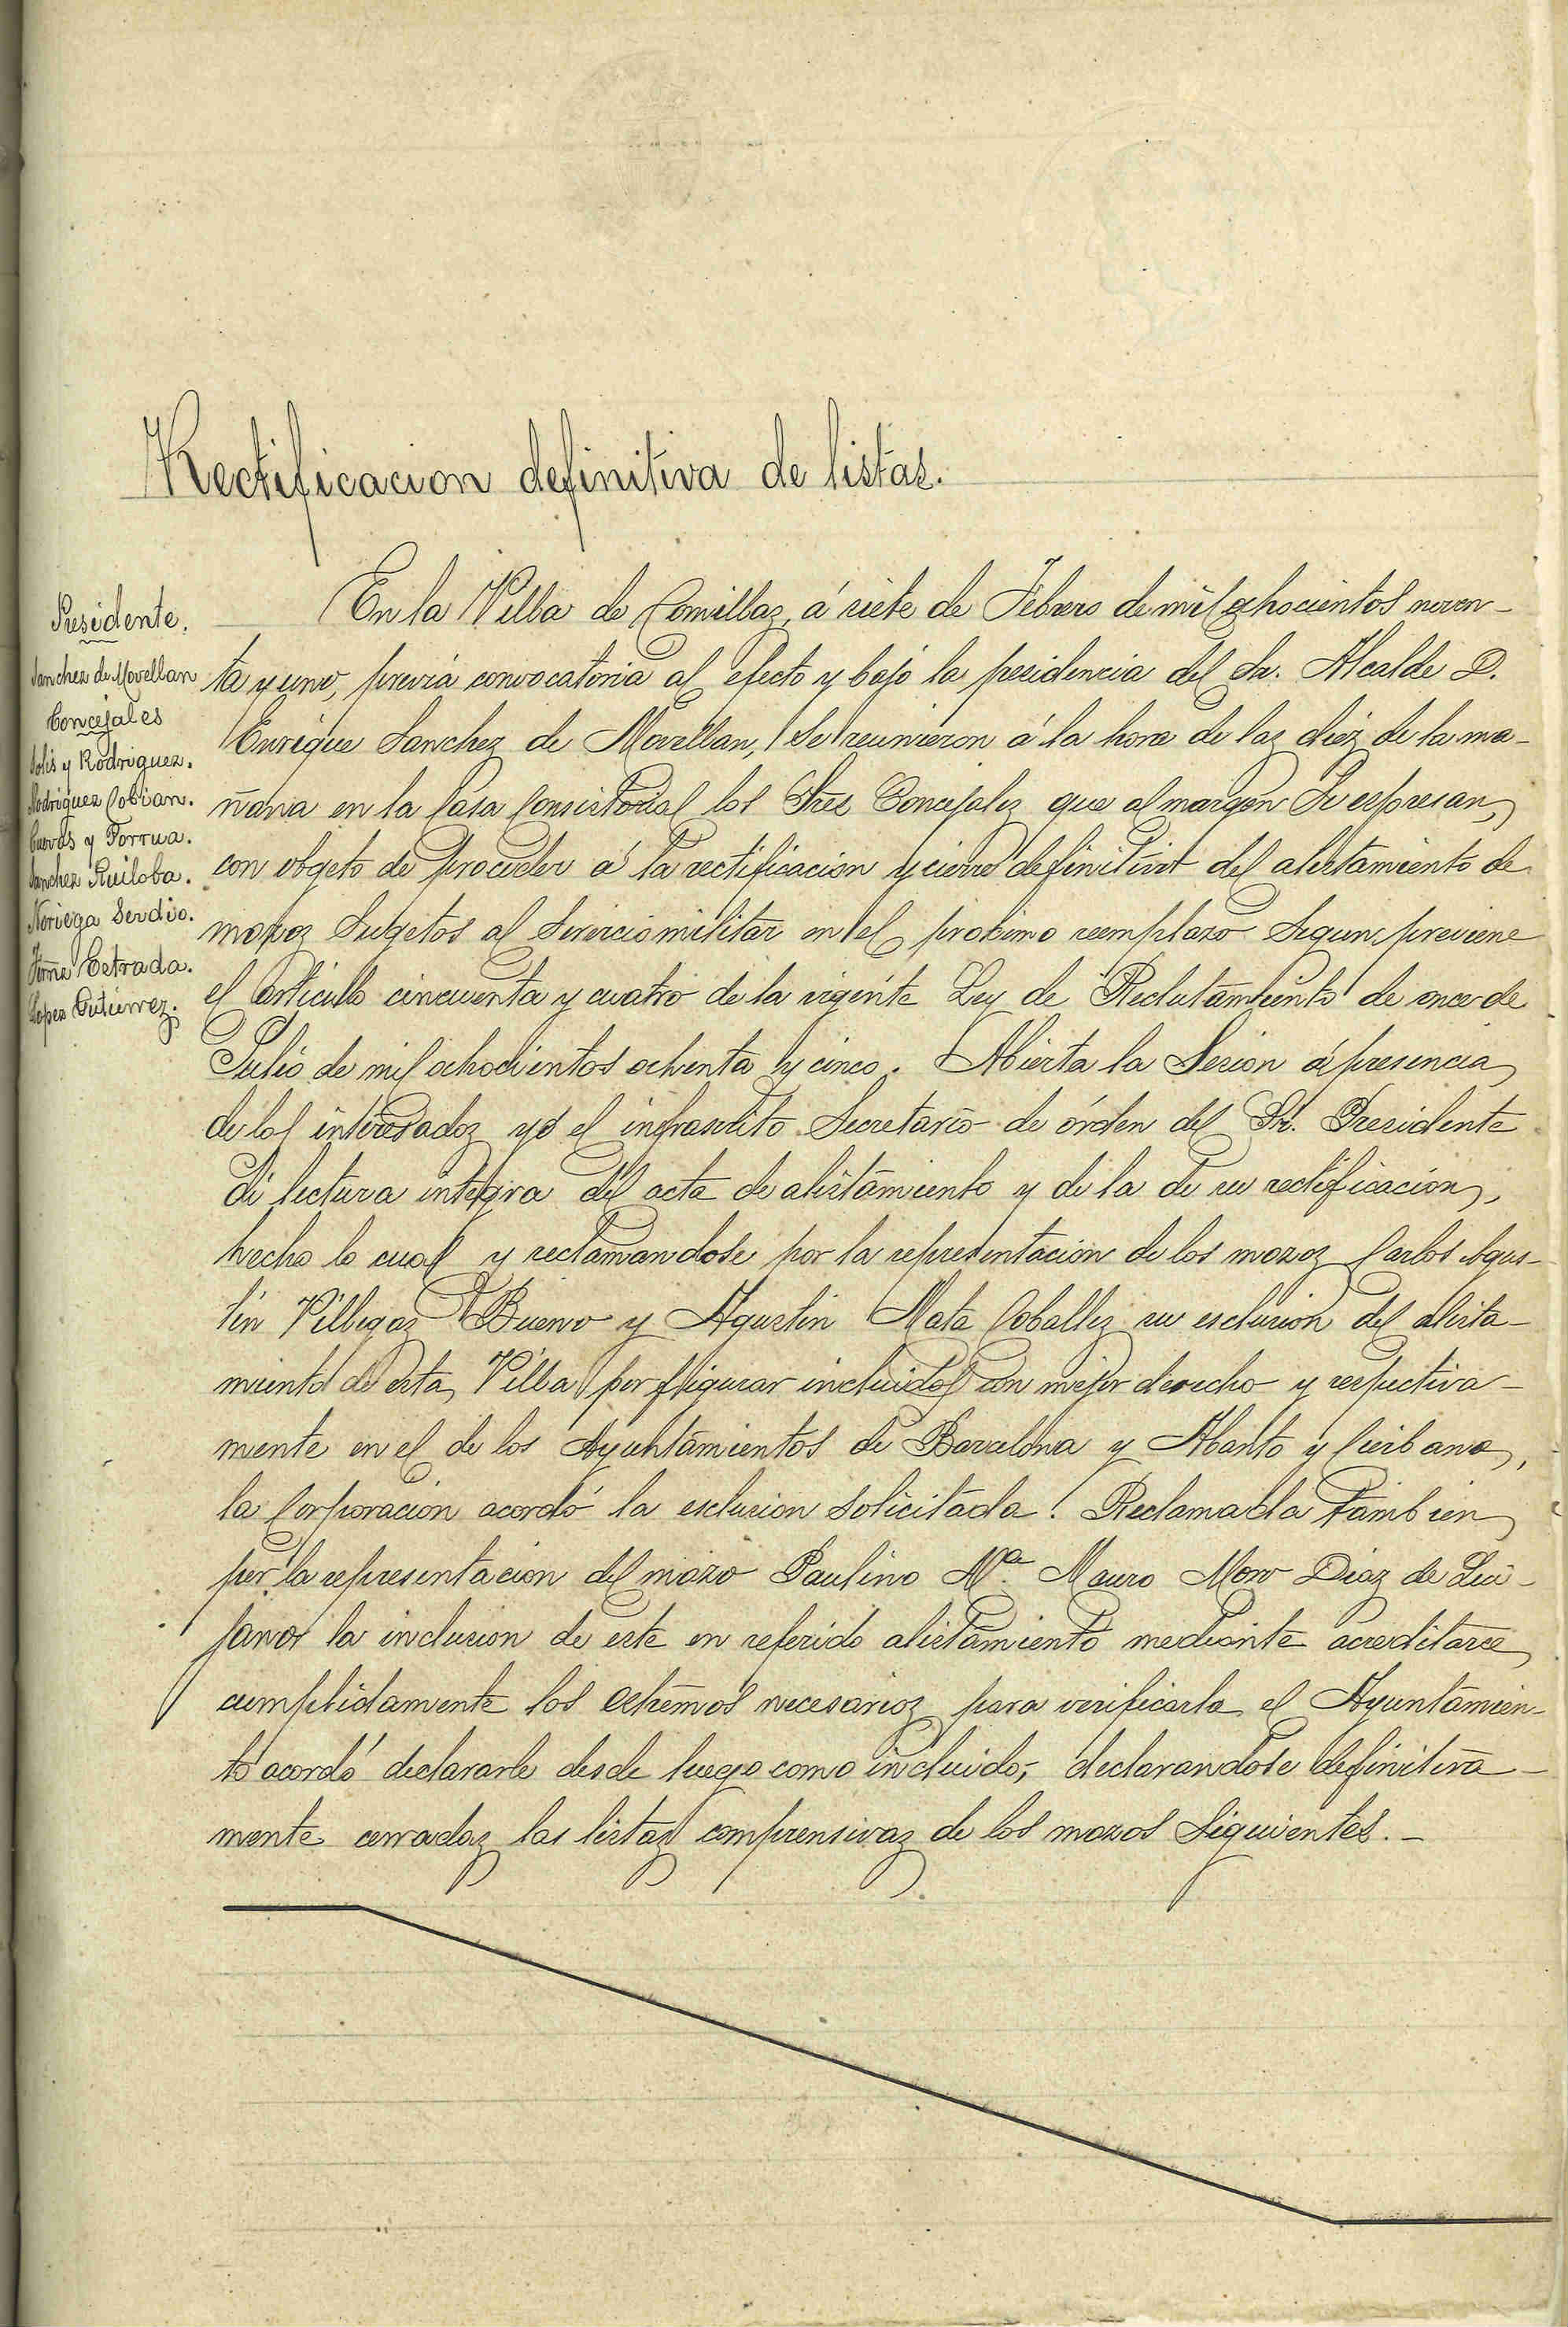 Rectificacion definitiva de listas.
Presidente.
Sanchez de Movellan
Concejales
Solis y Rodriguez.
Rodriguez Cobian.
Cuevas y Torrua.
Sanchez Ruiloba.
Noriega Serdio.
Estrada.
Lopez Gutierrez.
En la Villa de Comillas, á siete de Febrero de mil ochocientos noven-
ta y uno, previa convocatoria al efecto y bajo la presidencia del Sr. Alcalde D.
Enrique Sanchez de Movellan, se reunieron á la hora de las diez de la ma-
ñana en la Casa Consistorial los Sres Concejales que al margen se espresan,
con objeto de proceder á la rectificacion y cierre definitivo del alistamiento de
mozos sugetos al servicio militar en el proximo reemplazo segun previene
el articulo cincuenta y cuatro de la vigente Ley de Reclutamiento de once de
Julio de mil ochocientos ochenta y cinco. Abierta la sesion á presencia
de los interesados yo el infrascrito Secretario de órden del Sr. Presidente
di lectura integra del acta de alistamiento y de la de su rectificacion,
hecho lo cual y reclamandose por la representacion de los mozos Carlos Agus-
tin Villegas Bueno y Agustin Mata Caballes su esclusion del alista-
miento de esta Villa por figurar incluidos con mejor derecho y respectiva-
mente en el de los Ayuntamientos de Barcelona y Abanto y Cierbana,
la Corporacion acordó la esclusion solicitada. Reclamada tambien
por la representacion del mozo Paulino Mª Mauro Moro Diaz de Qui-
jano la inclusion de este en referido alistamiento mediante acreditarse
cumplidamente los estremos necesarios para verificarla el Ayuntamien-
to acordó declararle desde luego como incluido, declarandose definitiva-
mente cerradas las listas comprensivas de los mozos siguientes.-